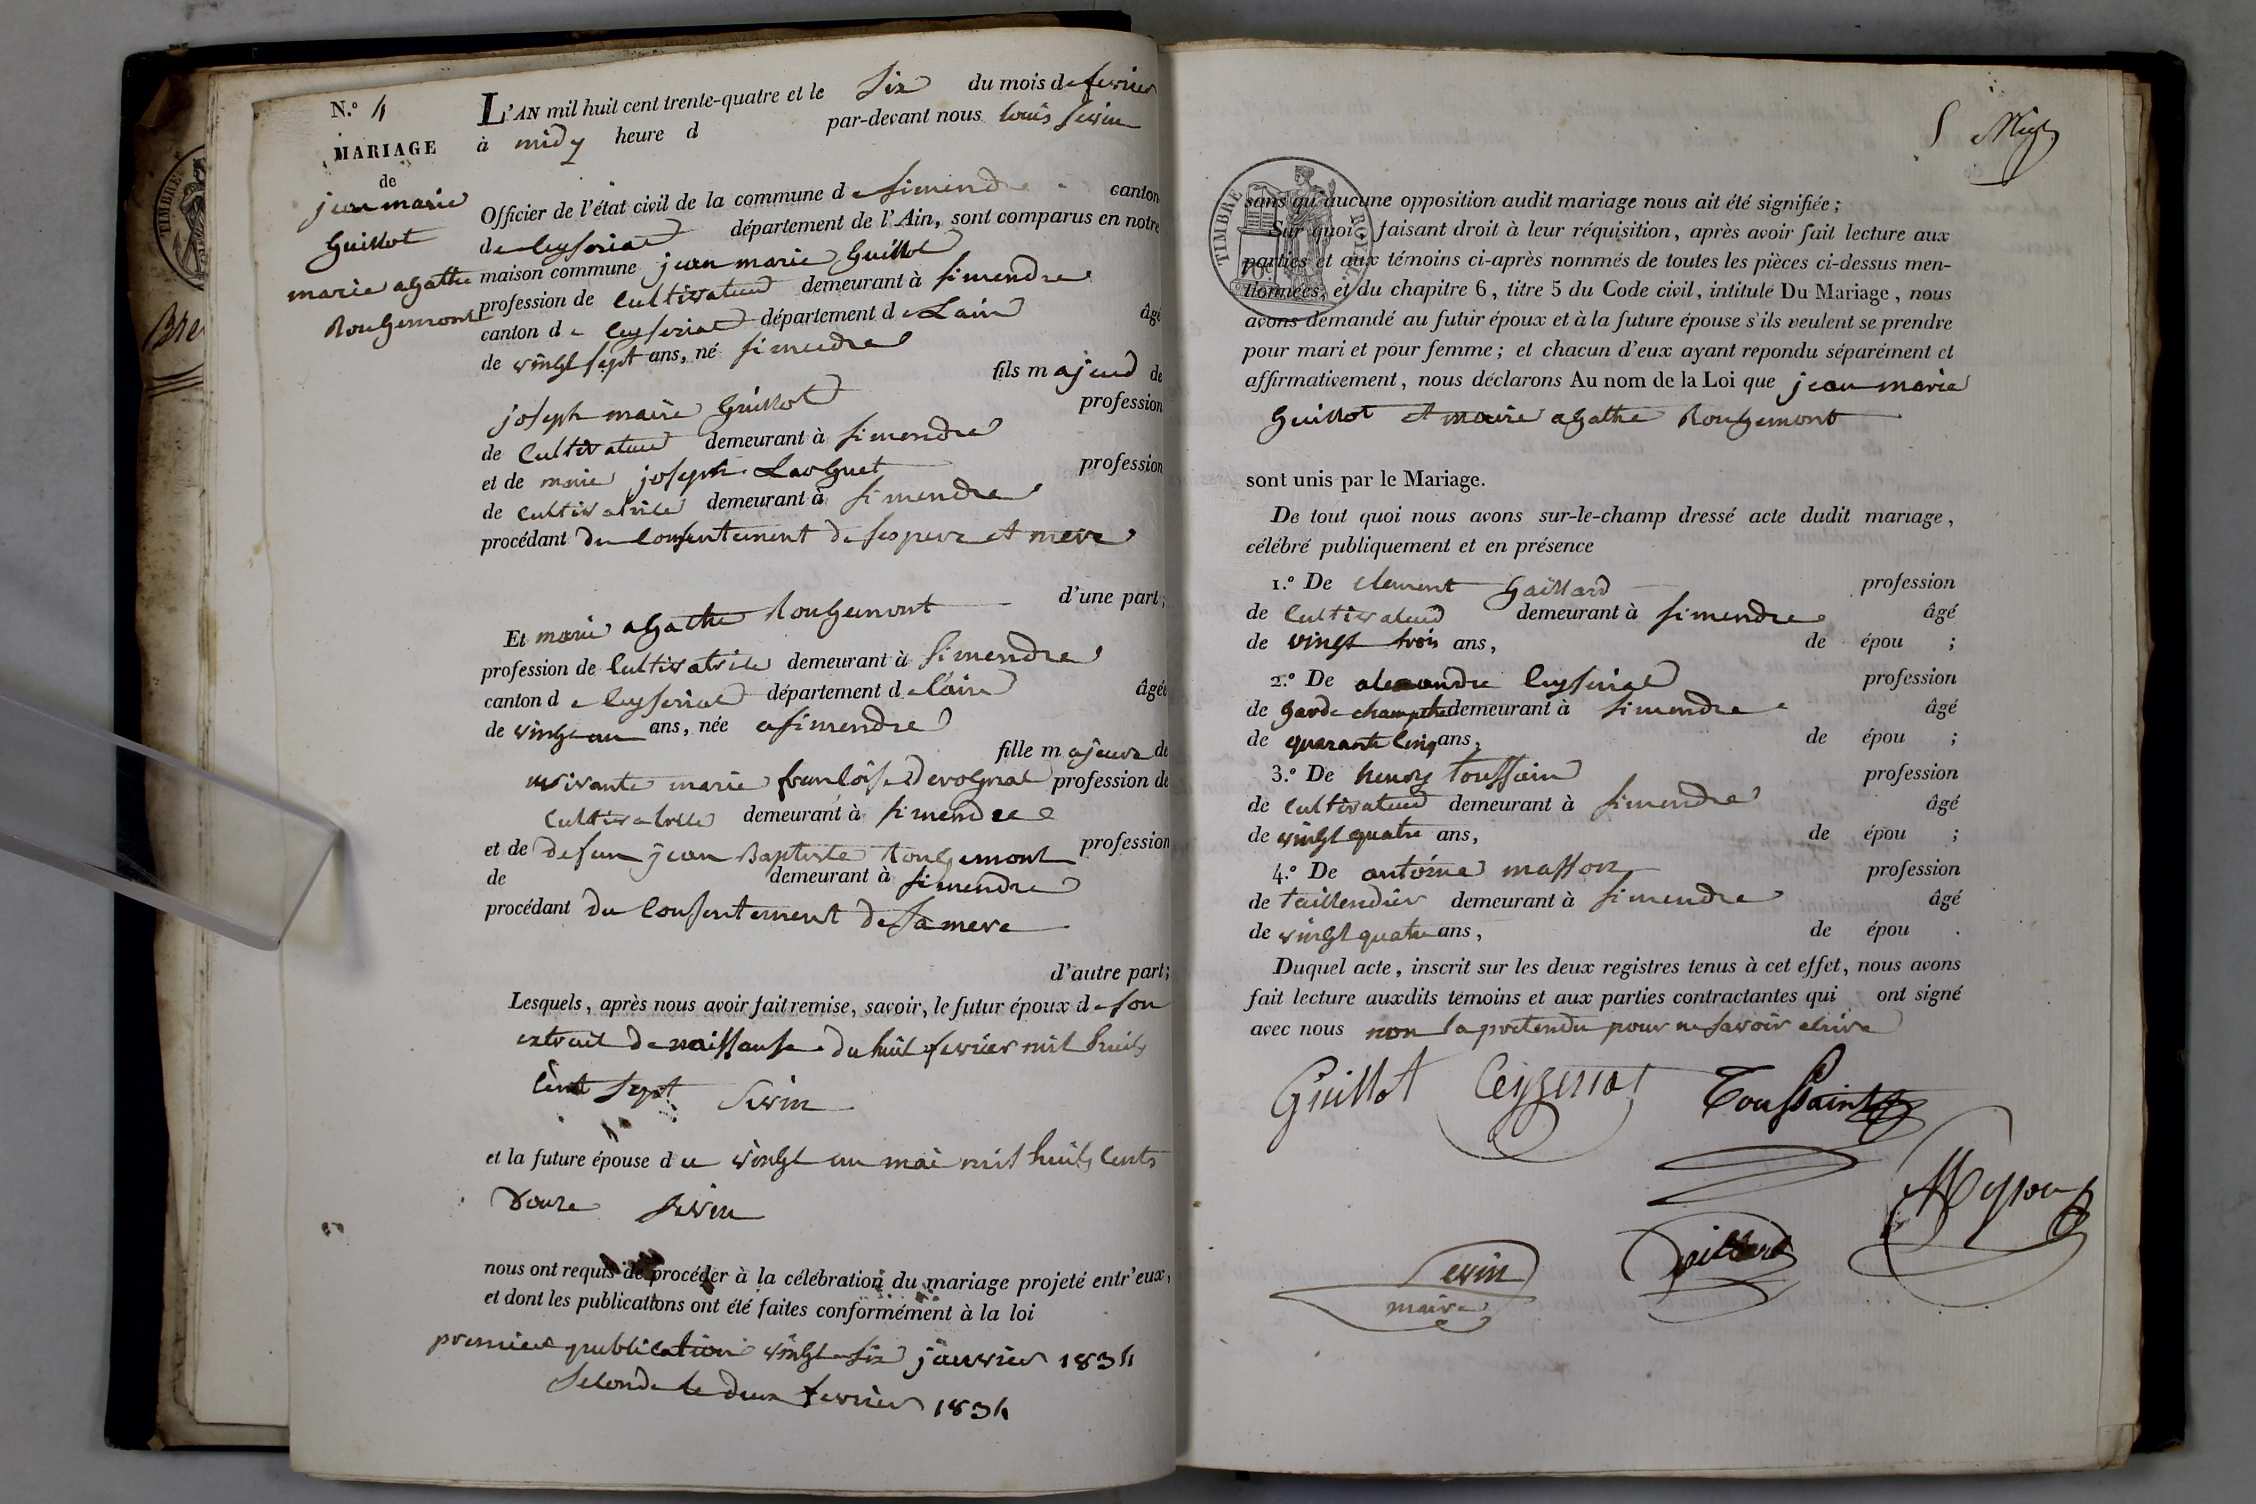 N.º 4
MARIAGE
de
jean marie
Guillot
marie agathe
Rougemont
TIMBRE
Bre
L'AN mil huit cent trente-quatre et le Six du mois de fevrier
à midy heure d par-devant nous louis sevin
Officier de l'état civil de la commune de simendre canton
de Ceyseriat département de l'Ain, sont comparus en notre
maison commune jean marie Guillot
profession de Cultivateur demeurant à simendre
canton de Ceyseriat département de Lain âgé
de vingt sept ans, né simendre
fils majeur de
joseph marie Guillot profession
de Cultivateur demeurant à simendre
et de marie joseph profession
de Cultivatrice demeurant à simendre
procédant du Consentement de ses pere et mere
d'une part;
Et marie agathe Rougemont
profession de Cultivatrice demeurant à simendre
canton de Ceyseriat département de lain âgée
de vingt un ans, née a simendre
fille majeure de
vivante marie francoise profession de
Cultivatrice demeurant à simendre
et de defun jean Baptiste Rougemont profession
de demeurant à simendre
procédant du Consentement de Sa mere
d'autre part;
Lesquels, après nous avoir fait remise, savoir, le futur époux de son
extrait de naissanse du huit fevrier mil huit
Cent Sept Sevin
et la future épouse du vingt un mai mil huit Cents
Douze Sevin
nous ont requis de procéder à la célébration du mariage projeté entr'eux,
et dont les publications ont été faites conformément à la loi
premiere publication vingt six janvier 1834
Seconde le deux fevrier 1834
5
TIMBRE ROYAL
sans qu'aucune opposition audit mariage nous ait été signifiée;
Sur quoi, faisant droit à leur réquisition, après avoir fait lecture aux
parties et aux témoins ci-après nommés de toutes les pièces ci-dessus men-
tionnées, et du chapitre 6, titre 5 du Code civil, intitulé Du Mariage, nous
avons demandé au futur époux et à la future épouse s'ils veulent se prendre
pour mari et pour femme; et chacun d'eux ayant répondu séparément et
affirmativement, nous déclarons Au nom de la Loi que jean marie
Guillot et marie agathe Rougemont
sont unis par le Mariage.
De tout quoi nous avons sur-le-champ dressé acte dudit mariage,
célébré publiquement et en présence
1.º De clement Gaillard profession
de Cultivateur demeurant à simendre âgé
de vingt trois ans, de épou ;
2.º De alexandre Ceyseriat profession
de Garde champetre demeurant à simendre âgé
de quarante Cinq ans, de épou ;
3.º De henry toussain profession
de Cultivateur demeurant à simendre âgé
de vingt quatre ans, de épou ;
4.º De antoine masson profession
de taillendier demeurant à simendre âgé
de vingt quatre ans, de épou .
Duquel acte, inscrit sur les deux registres tenus à cet effet, nous avons
fait lecture auxdits témoins et aux parties contractantes qui ont signé
avec nous non la pretendu pour ne savoir ecrire
Guillot Ceyzeriat Toussaint
Masson
Gaillard
Sevin
maire